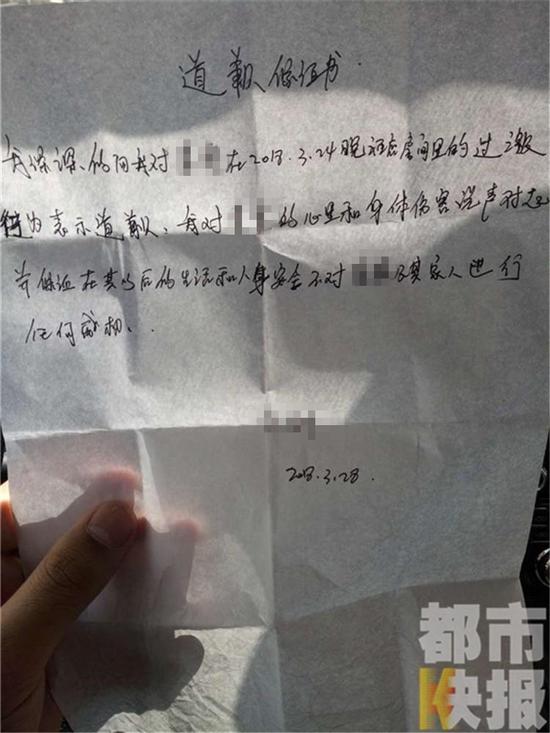 道歉保证书.
我深深的向我对在2018.3.24晚在房间里的过激
行为表示道歉、我对的心里和身体伤害说声对起
并保证在其以后的生活和人身安全不对及其家人进行
任何威胁、.
2018.3.28.
都市
快报